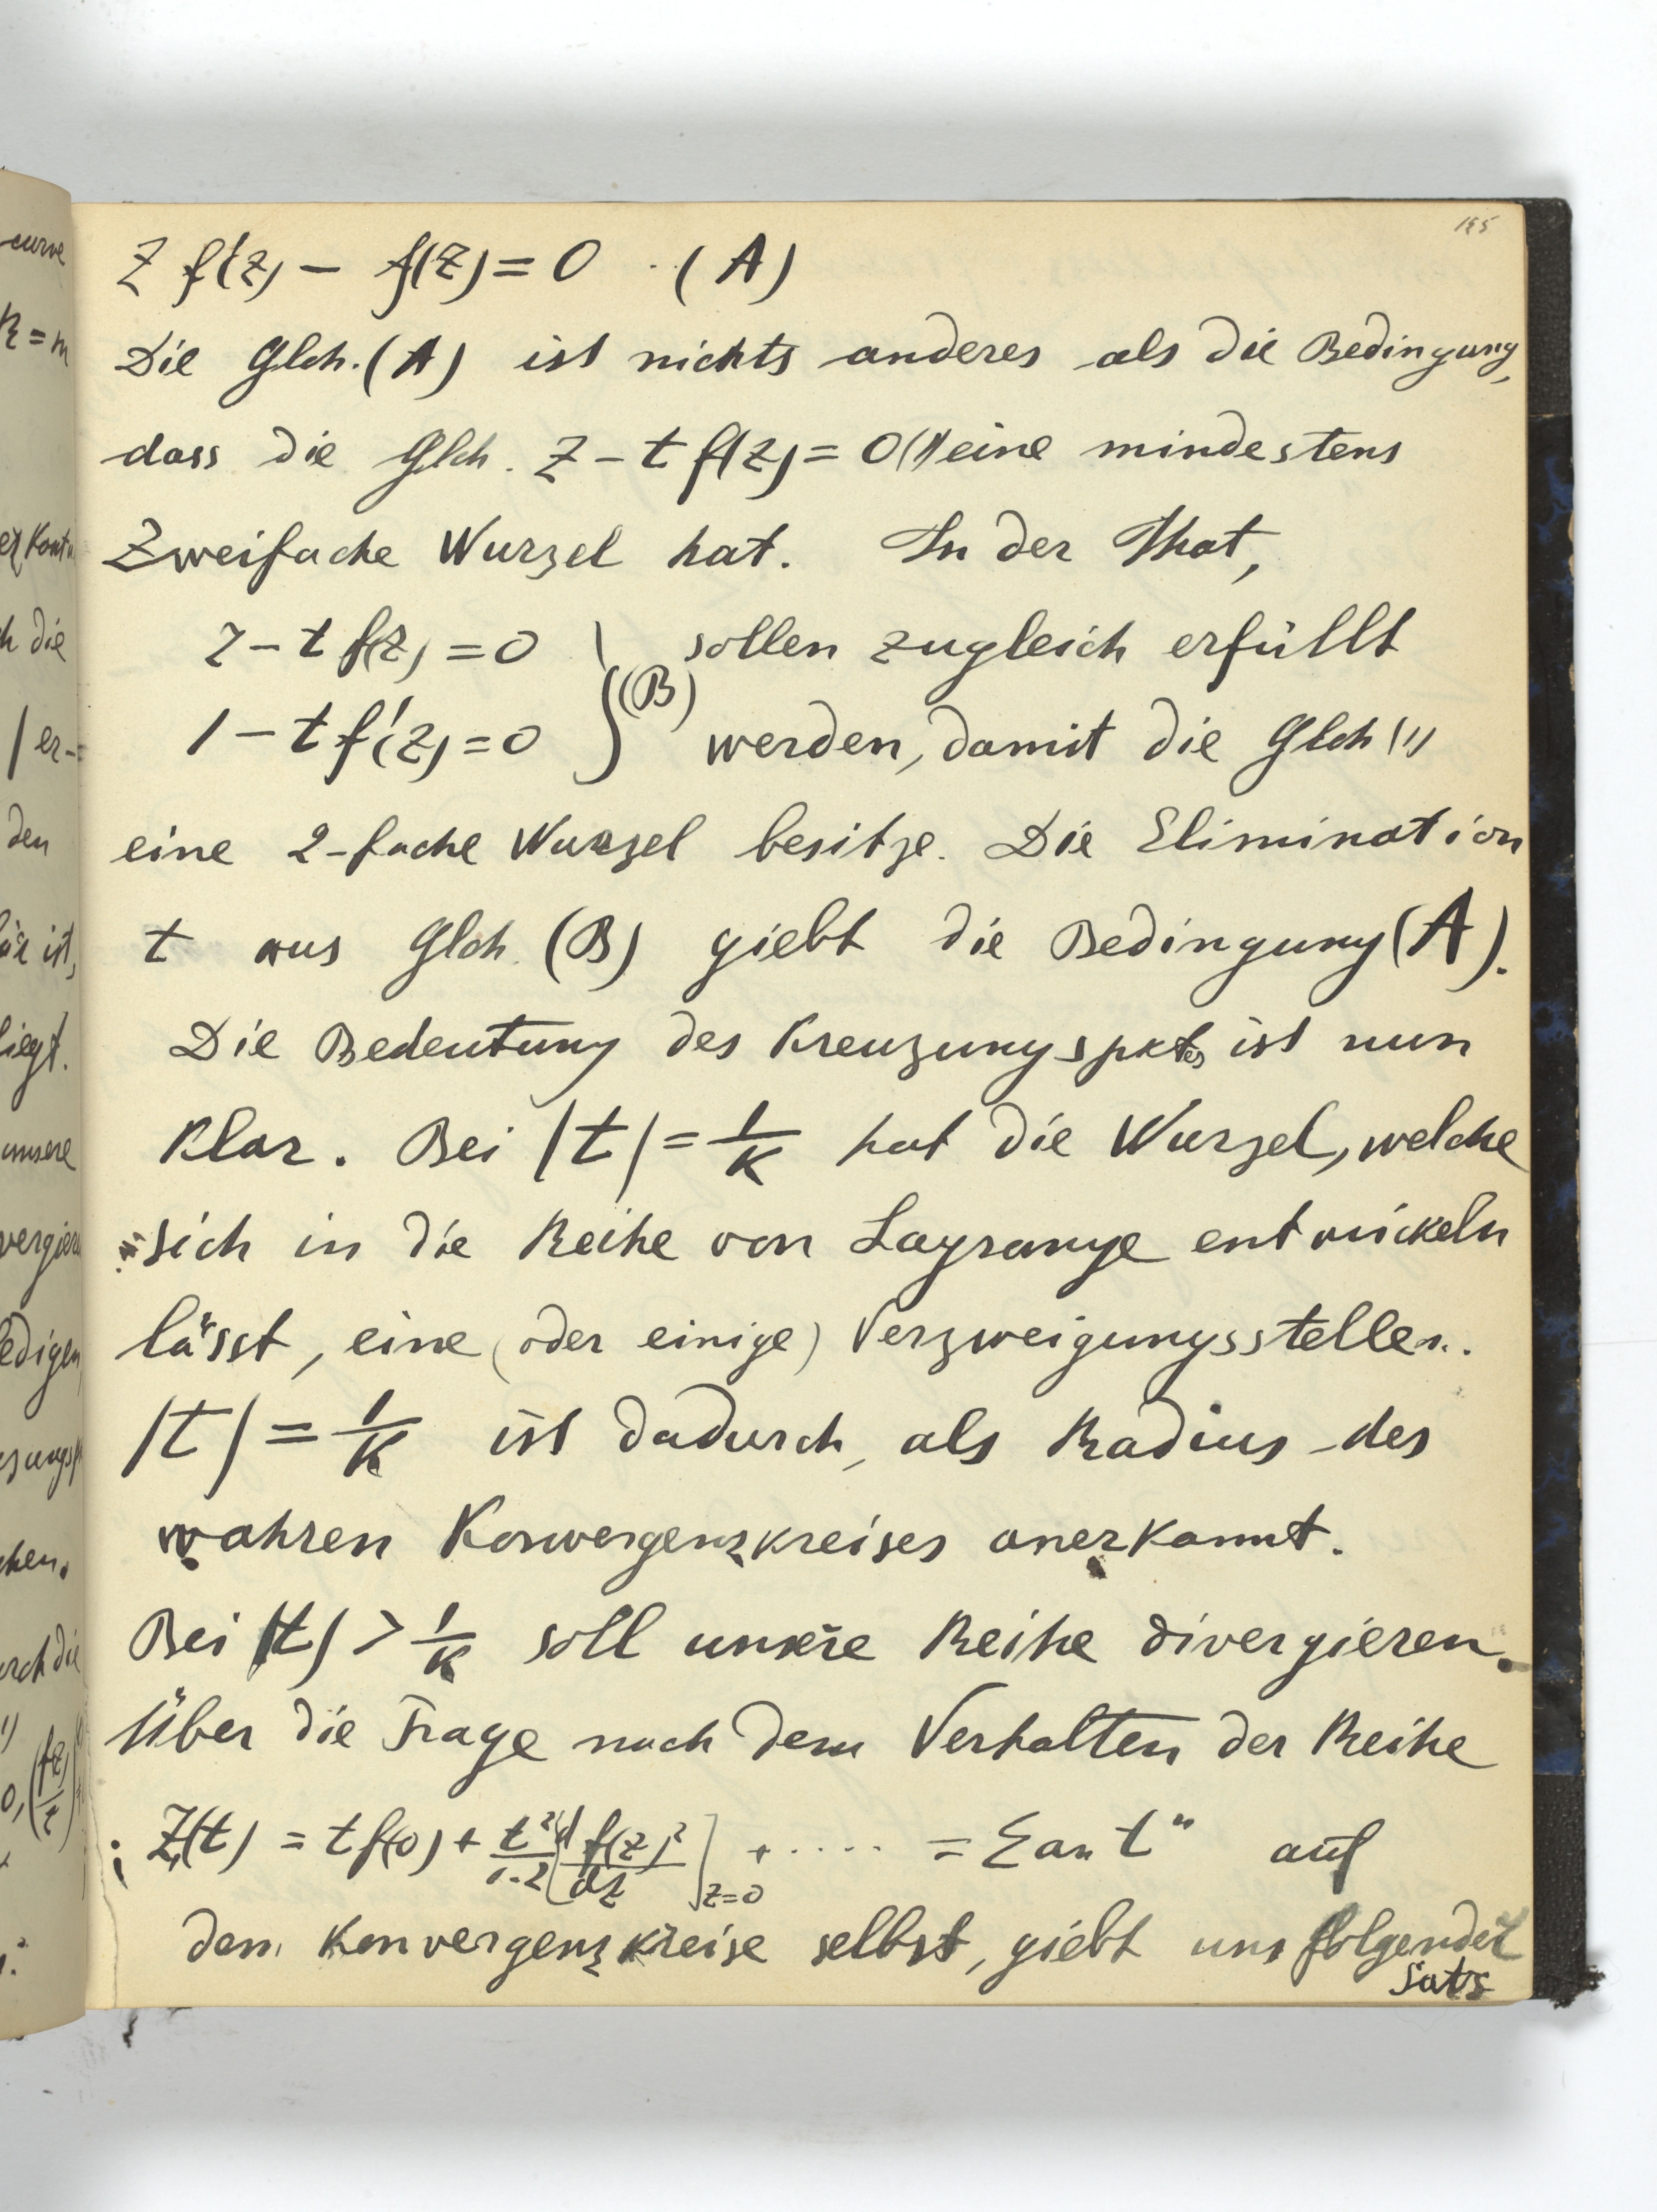 155
z f'(z) – f(z) = 0 · (A)
Die Glch. (A) ist nichts anderes als die Bedingung,
dass die Glch. z – t f(z) = 0 (1) eine mindestens
Zweifache Wurzel hat. In der That,
z – t f(z) = 0 } sollen zugleich erfüllt
1 – t f'(z) = 0 } (B) werden, damit die Glch (1)
eine 2-fache Wurzel besitze. Die Elimination
t aus Glch. (B) giebt die Bedingung (A).
Die Bedeutung des Kreuzungspktes ist nun
klar. Bei |t| = 1/K hat die Wurzel, welche
sich in die Reihe von Lagrange entwickeln
lässt, eine (oder einige) Verzweigungsstellen.
|t| = 1/K ist dadurch, als Radius des
wahren Konvergenzkreises anerkannt.
Bei |t| > 1/K soll unsere Reihe divergieren.
Über die Frage nach dem Verhalten der Reihe
; z₁(t) = t f(0) + t²/1·2 [d f(z)²/dz]z=0 + ····· = Σ aₙ tⁿ auf
dem Konvergenzkreise selbst, giebt uns folgender
Satz
curve
K = m
h die
er-
den
ist,
liegt.
unsere
ledigen
chen.